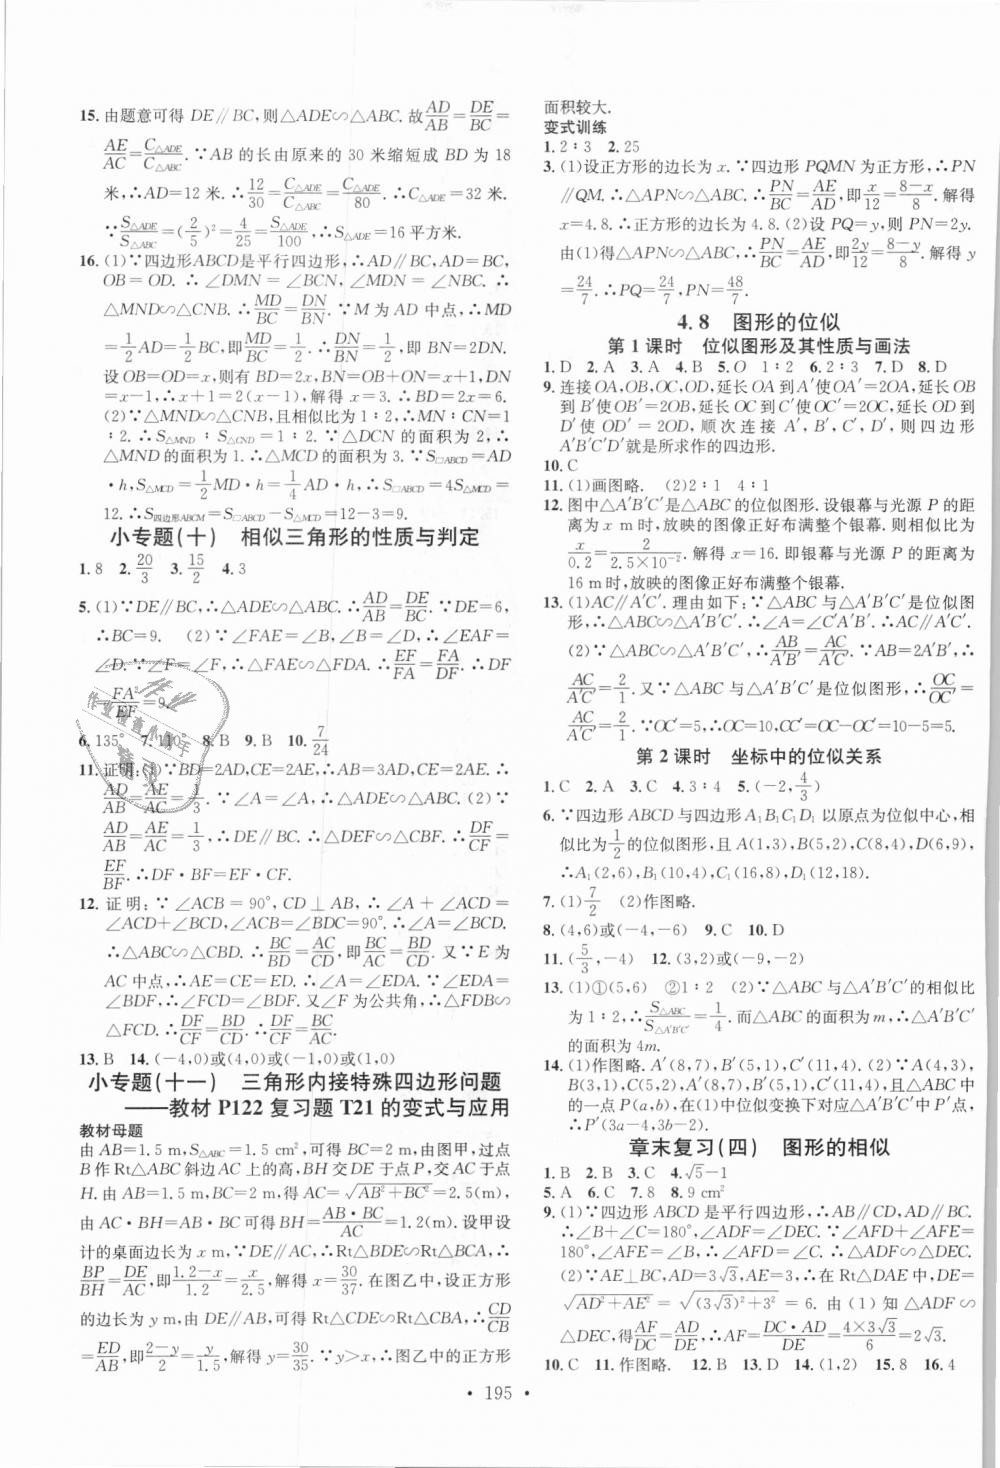 15. 由题意可得 DE∥BC,则△ADE∽△ABC. 故AD/AB=DE/BC=
AE/AC=C△ADE/C△ABC. ∵AB 的长由原来的 30 米缩短成 BD 为 18
米,∴AD=12 米. ∴12/30=C△ADE/C△ABC=C△ADE/80. ∴C△ADE=32 米.
∵S△ADE/S△ABC=(2/5)²=4/25=S△ADE/100,∴S△ADE=16 平方米.
16. (1)∵四边形ABCD是平行四边形,∴AD∥BC,AD=BC,
OB=OD. ∴∠DMN=∠BCN,∠MDN=∠NBC. ∴
△MND∽△CNB. ∴MD/BC=DN/BN. ∵M 为 AD 中点,∴MD=
1/2AD=1/2BC,即MD/BC=1/2. ∴DN/BN=1/2,即 BN=2DN.
设 OB=OD=x,则有 BD=2x,BN=OB+ON=x+1,DN
=x-1,∴x+1=2(x-1),解得 x=3. ∴BD=2x=6.
(2)∵△MND∽△CNB,且相似比为 1∶2,∴MN∶CN=1
∶2. ∴S△MND∶S△CND=1∶2. ∵△DCN 的面积为 2,∴
△MND 的面积为 1. ∴△MCD 的面积为 3. ∵S□ABCD=AD
·h,S△MCD=1/2MD·h=1/4AD·h,∴S□ABCD=4S△MCD=
12. ∴S四边形ABCM=S□ABCD-S△MCD=12-3=9.
小专题(十) 相似三角形的性质与判定
1. 8 2. 20/3 3. 15/2 4. 3
5. (1)∵DE∥BC,∴△ADE∽△ABC. ∴AD/AB=DE/BC. ∵DE=6,
∴BC=9. (2)∵∠FAE=∠B,∠B=∠D,∴∠EAF=
∠D. ∵∠F=∠F,∴△FAE∽△FDA. ∴EF/FA=FA/DF. ∴DF
=FA²/EF=9.
6. 135° 7. 110° 8. B 9. B 10. 7/24
11. 证明:(1)∵BD=2AD,CE=2AE,∴AB=3AD,AC=3AE. ∴
AD/AB=AE/AC=1/3. ∵∠A=∠A,∴△ADE∽△ABC. (2)∵
AD/AB=AE/AC=1/3,∴DE∥BC. ∴△DEF∽△CBF. ∴DF/CF=
EF/BF. ∴DF·BF=EF·CF.
12. 证明:∵∠ACB=90°,CD⊥AB,∴∠A+∠ACD=
∠ACD+∠BCD,∠ACB=∠BDC=90°. ∴∠A=∠BCD.
∴△ABC∽△CBD. ∴BC/BD=AC/CD,即BC/AC=BD/CD. 又∵E 为
AC 中点,∴AE=CE=ED. ∴∠A=∠EDA. ∵∠EDA=
∠BDF,∴∠FCD=∠BDF. 又∠F 为公共角,∴△FDB∽
△FCD. ∴DF/CF=BD/CD. ∴DF/CF=BC/AC.
13. B 14. (-4,0)或(4,0)或(-1,0)或(1,0)
小专题(十一) 三角形内接特殊四边形问题
——教材 P122 复习题 T21 的变式与应用
教材母题
由 AB=1.5 m,S△ABC=1.5 cm²,可得 BC=2 m,由图甲,过点
B 作 Rt△ABC 斜边 AC 上的高,BH 交 DE 于点 P,交 AC 于点
H. 由 AB=1.5 m,BC=2 m,得 AC=√(AB²+BC²)=2.5(m),
由 AC·BH=AB·BC 可得 BH=AB·BC/AC=1.2(m). 设甲设
计的桌面边长为 x m,∵DE∥AC,∴Rt△BDE∽Rt△BAC,∴
BP/BH=DE/AC,即(1.2-x)/1.2=x/2.5,解得 x=30/37. 在图乙中,设正方形
的边长为 y m,由 DE∥AB,可得 Rt△CDE∽Rt△CBA,∴CD/CB=
ED/AB,即(2-y)/2=y/1.5,解得 y=30/35. ∵y>x,∴图乙中的正方形
面积较大.
变式训练
1. 2∶3 2. 25
3. (1)设正方形的边长为 x. ∵四边形 PQMN 为正方形,∴PN
∥QM. ∴△APN∽△ABC. ∴PN/BC=AE/AD,即x/12=(8-x)/8. 解得
x=4.8. ∴正方形的边长为 4.8. (2)设 PQ=y,则 PN=2y.
由(1)得△APN∽△ABC,∴PN/BC=AE/AD,即2y/12=(8-y)/8. 解得 y
=24/7. ∴PQ=24/7,PN=48/7.
4.8 图形的位似
第 1 课时 位似图形及其性质与画法
1. D 2. A 3. A 4. B 5. O 1∶2 6. 2∶3 7. D 8. D
9. 连接 OA,OB,OC,OD,延长 OA 到 A′使 OA′=2OA,延长 OB
到 B′使 OB′=2OB,延长 OC 到 C′使 OC′=2OC,延长 OD 到
D′使 OD′=2OD,顺次连接 A′,B′,C′,D′,则四边形
A′B′C′D′就是所求作的四边形.
10. C
11. (1)画图略. (2)2∶1 4∶1
12. 图中△A′B′C′是△ABC 的位似图形. 设银幕与光源 P 的距离
为 x m 时,放映的图像正好布满整个银幕. 则根据相似比为
x/0.2=2/(2.5×10⁻²). 解得 x=16. 即银幕与光源 P 的距离为
16 m 时,放映的图像正好布满整个银幕.
13. (1)AC∥A′C′. 理由如下:∵△ABC 与△A′B′C′是位似图
形,∴△ABC∽△A′B′C′. ∴∠A=∠C′A′B′. ∴AC∥A′C′.
(2)∵△ABC∽△A′B′C′,∴AB/A′B′=AC/A′C′. ∵AB=2A′B′,∴
AC/A′C′=2/1. 又∵△ABC 与△A′B′C′是位似图形,∴OC/OC′=
AC/A′C′=2/1. ∵OC′=5,∴OC=10,∴CC′=OC-OC′=10-5=5.
第 2 课时 坐标中的位似关系
1. C 2. A 3. C 4. 3∶4 5. (-2,4/3)
6. ∵四边形 ABCD 与四边形 A₁B₁C₁D₁ 以原点为位似中心,相
似比为1/2的位似图形,且 A(1,3),B(5,2),C(8,4),D(6,9),
∴A₁(2,6),B₁(10,4),C₁(16,8),D₁(12,18).
7. (1)7/2 (2)作图略.
8. (4,6)或(-4,-6) 9. C 10. D
11. (5/3,-4) 12. (3,2)或(-9,-2)
13. (1)①(5,6) ②1∶2 (2)∵△ABC 与△A′B′C′的相似比
为 1∶2,∴S△ABC/S△A′B′C′=1/4. 而△ABC 的面积为 m,∴△A′B′C′
的面积为 4m.
14. (1)作图略. A′(8,7),B′(5,1),C′(13,4). (2)∵A(4,3),
B(3,1),C(5,2),A′(8,7),B′(5,1),C′(11,4),△ABC 内的
一点 P(a,b),在(1)中位似变换下对应△A′B′C′中 P′点,
∴P′(3a-4,3b-2).
章末复习(四) 图形的相似
1. B 2. B 3. C 4. √5-1
5. A 6. C 7. 8 8. 9 cm²
9. (1)∵四边形 ABCD 是平行四边形,∴AB∥CD,AD∥BC.
∴∠B+∠C=180°,∠ADF=∠DEC. ∵∠AFD+∠AFE=
180°,∠AFE=∠B,∴∠AFD=∠C. ∴△ADF∽△DEC.
(2)∵AE⊥BC,AD=3√3,AE=3,∴在 Rt△DAE 中,DE
=√(AD²+AE²)=√((3√3)²+3²)=6. 由(1)知△ADF∽
△DEC,得AF/DC=AD/DE,∴AF=DC·AD/DE=4×3√3/6=2√3.
10. C 11. 作图略. 12. B 13. D 14. (1,2) 15. 8 16. 4
· 195 ·